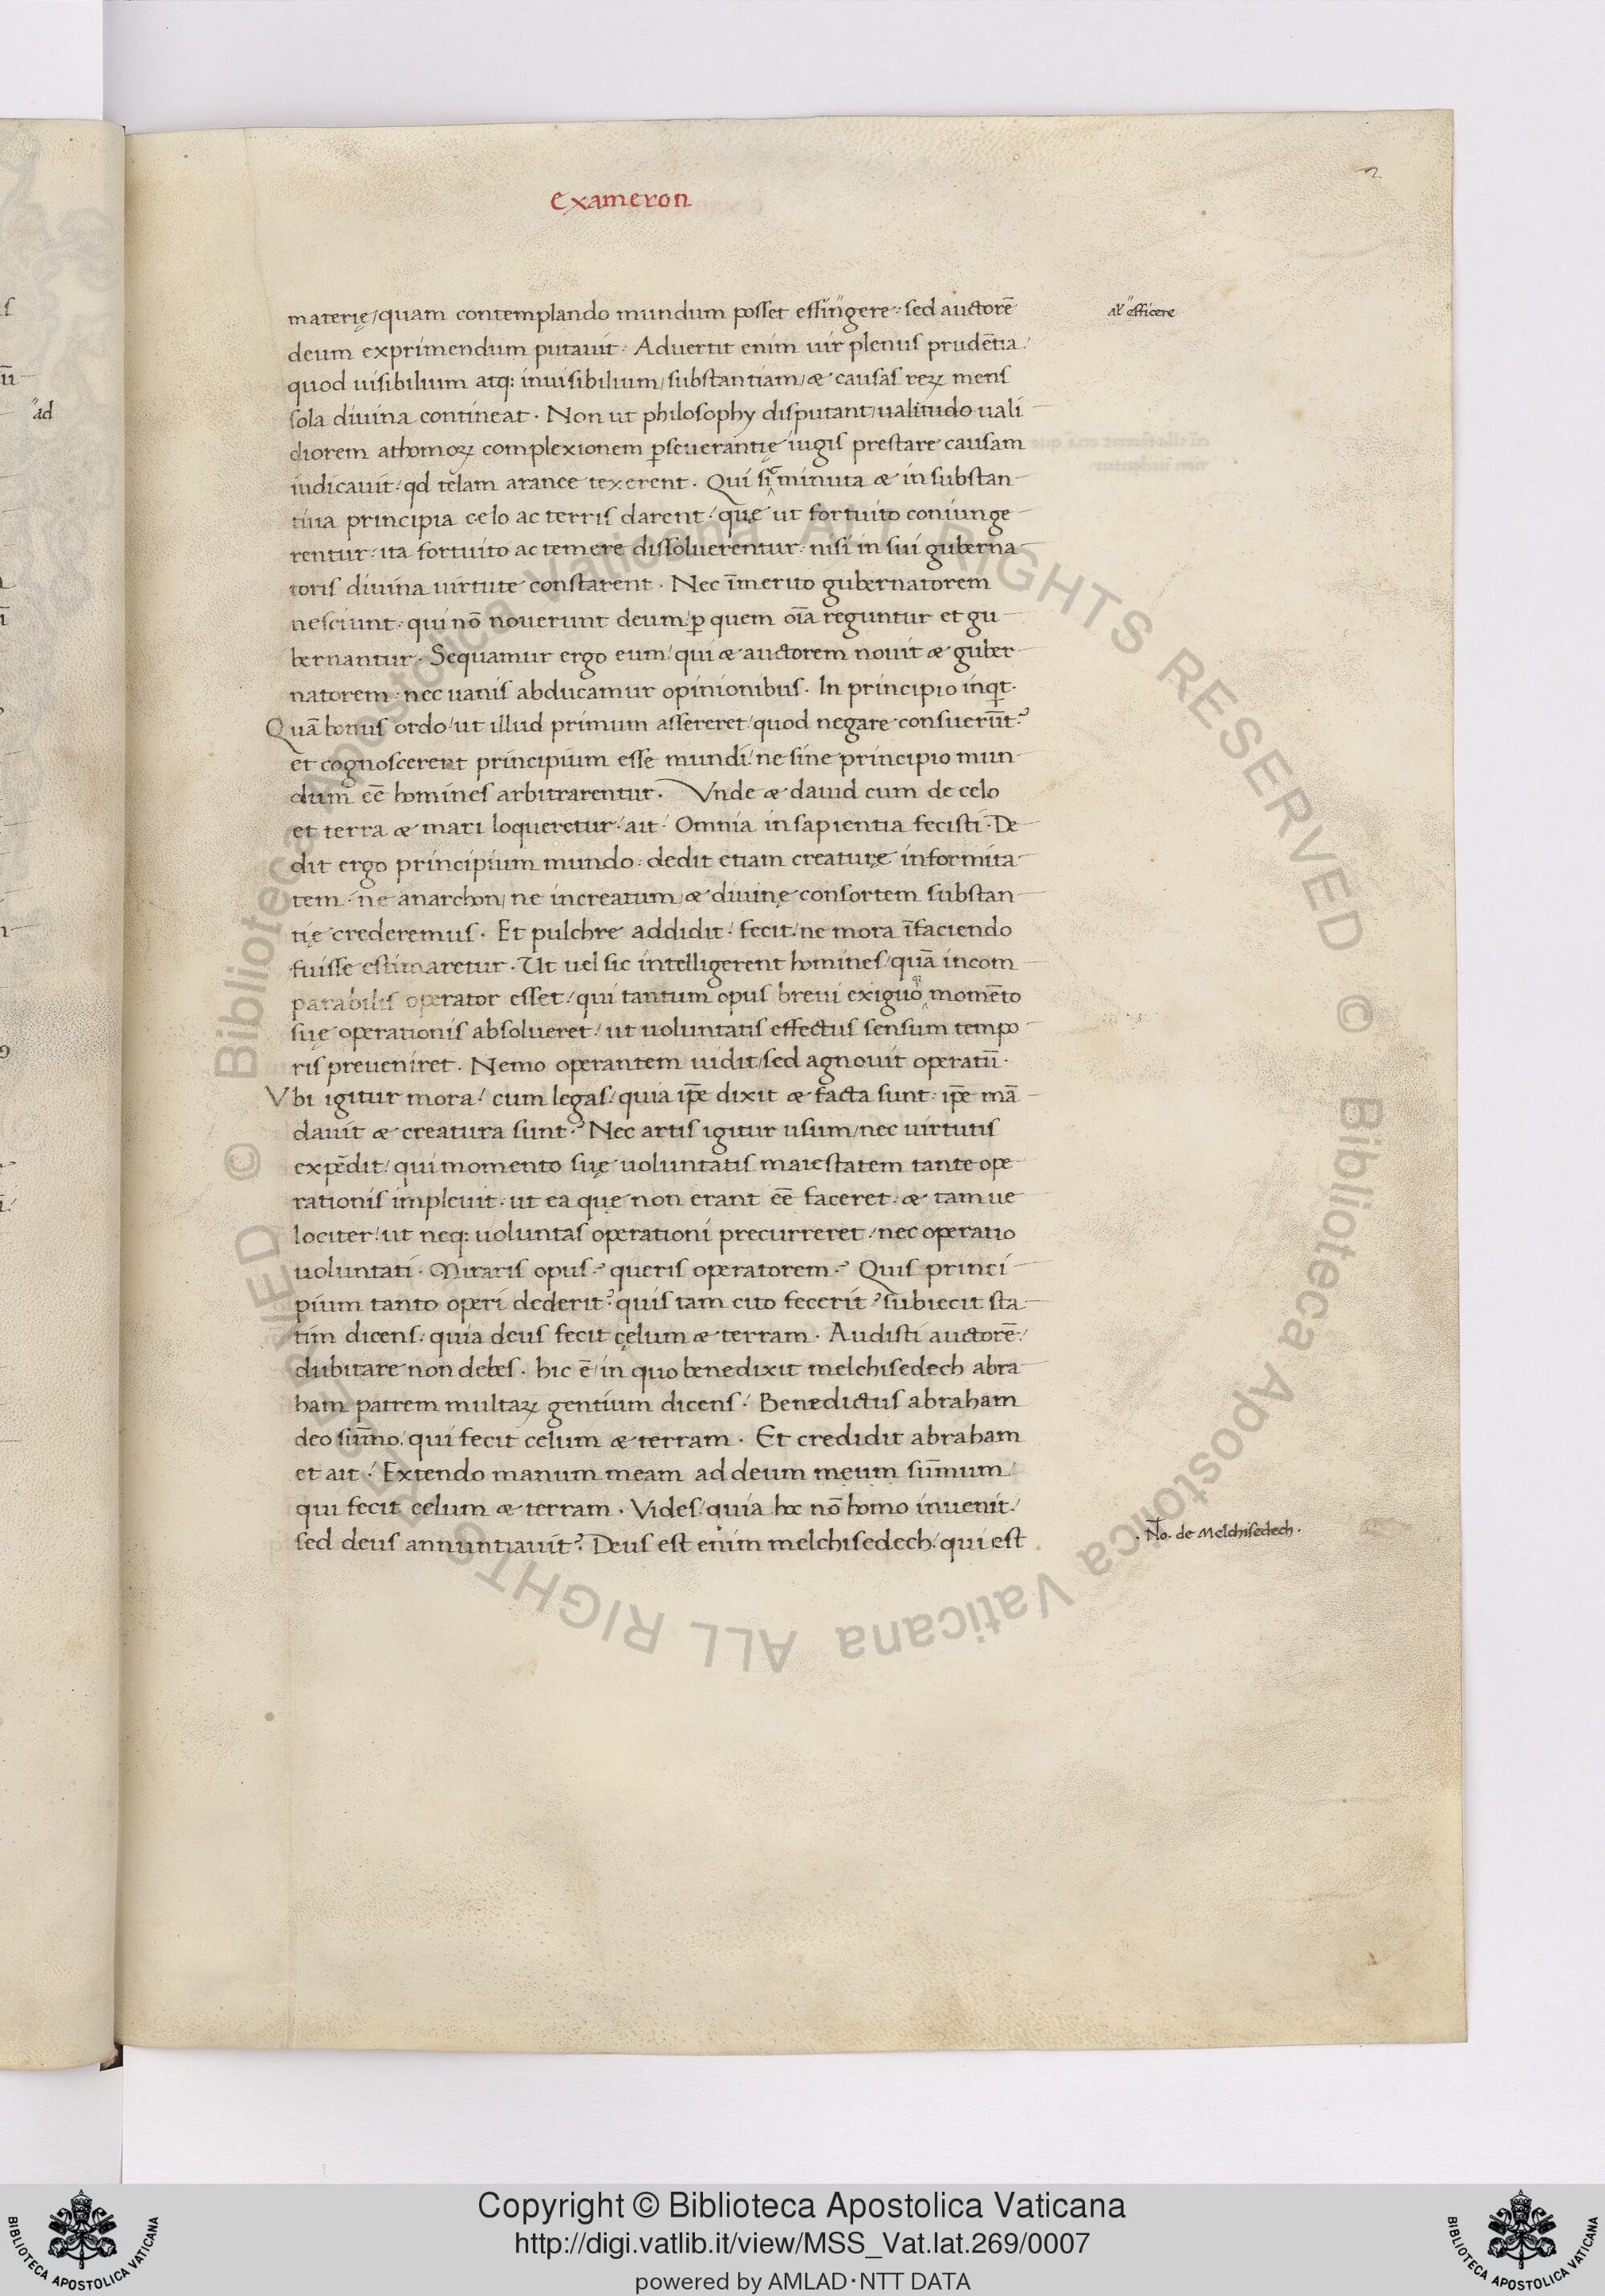 2
Exameron
materię/quam contemplando mundum posset effingere: sed auctorē
al' efficere
deum exprimendum putauit. Aduertit enim uir plenus prudētia/
quod uisibilium atq; inuisibilium/substantiam/& causas reꝝ mens
sola diuina contineat. Non ut philosophy disputant/ualitudo uali
diorem athomoꝝ complexionem ꝑseuerantię iugis prestare causam
iudicauit/qd telam aranee texerent. Qui sic minuta & in substan
tiua principia celo ac terris darent/quę ut fortuito coniunge
rentur: ita fortuito ac temere dissoluerentur: nisi in sui guberna
toris diuina uirtute constarent. Nec īmerito gubernatorem
nesciunt: qui nō nouerunt deum/ꝑ quem oīa reguntur et gu
bernantur. Sequamur ergo eum/qui & auctorem nouit & guber
natorem: nec uanis abducamur opinionibus. In principio inqt.
Quā bonus ordo/ut illud primum assereret/quod negare consuerūt?
et cognoscerent principium esse mundi/ne sine principio mun
dum eē homines arbitrarentur. Vnde & dauid cum de celo
et terra & mari loqueretur/ait/ Omnia in sapientia fecisti. De
dit ergo principium mundo: dedit etiam creaturę informita
tem: ne anarchon/ne increatum/& diuinę consortem substan
tię crederemus. Et pulchre addidit/fecit/ne mora īfaciendo
fuisse estimaretur. Ut uel sic intelligerent homines/quā incom
parabilis operator esset/qui tantum opus breui exiguoq; momēto
suę operationis absolueret/ut uoluntatis effectus sensum tempo
ris preueniret. Nemo operantem uidit/sed agnouit operatū.
Vbi igitur mora/cum legas/quia ip̄e dixit & facta sunt: ip̄e mā
dauit & creatura sunt? Nec artis igitur usum/nec uirtutis
expēdit/qui momento suę uoluntatis maiestatem tante ope
rationis impleuit: ut ea quę non erant eē faceret: & tam ue
lociter/ut neq; uoluntas operationi precurreret/nec operatio
uoluntati. Miraris opus? queris operatorem? Quis princi
pium tanto operi dederit? quis tam cito fecerit? subiecit sta
tim dicens: quia deus fecit cęlum & terram. Audisti auctorē/
dubitare non debes. hic ē/in quo benedixit melchisedech abra
ham patrem multaꝝ gentium dicens/ Benedictus abraham
deo sūmo/qui fecit celum & terram. Et credidit abraham
et ait/ Extendo manum meam ad deum meum sūmum/
qui fecit celum & terram. Vides/quia hoc nō homo inuenit/
sed deus annuntiauit? Deus est enim melchisedech/qui est
.No. de Melchisedech.
ad
© Biblioteca Apostolica Vaticana ALL RIGHTS RESERVED © Biblioteca Apostolica Vaticana ALL RIGHTS RESERVED
Copyright © Biblioteca Apostolica Vaticana
http://digi.vatlib.it/view/MSS_Vat.lat.269/0007
powered by AMLAD·NTT DATA
BIBLIOTECA APOSTOLICA VATICANA
BIBLIOTECA APOSTOLICA VATICANA